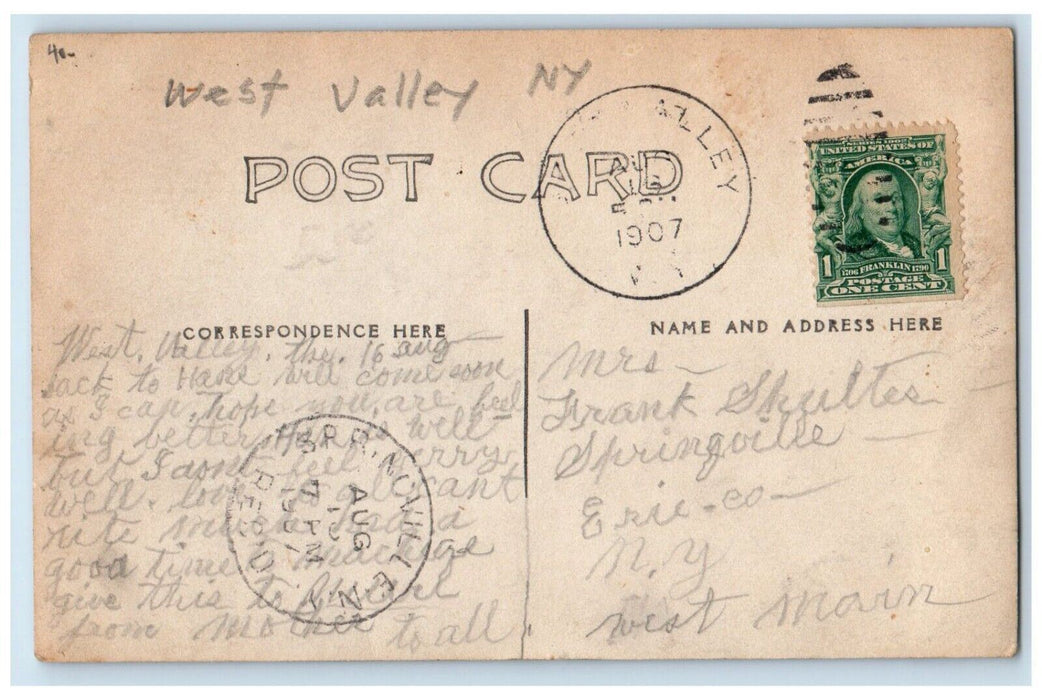 40-
West Valley NY
POST CARD
VALLEY
AUG
1907
N.Y.
SERIES 1902
UNITED STATES OF
AMERICA
1 1706 FRANKLIN 1790 1
POSTAGE
ONE CENT
CORRESPONDENCE HERE
NAME AND ADDRESS HERE
West, Valley, the, 16 aug
will come soon
as I can, hope you, are feel
ing better, will
but I dont feel verry
well. love to all cant
rite more had a
good time
give this to
from Mother to all
SPRINGVILLE N.Y.
AUG
7 PM
1907
REC'D
Mrs -
Frank Shultes
Springville
Erie-co-
N.Y
west main